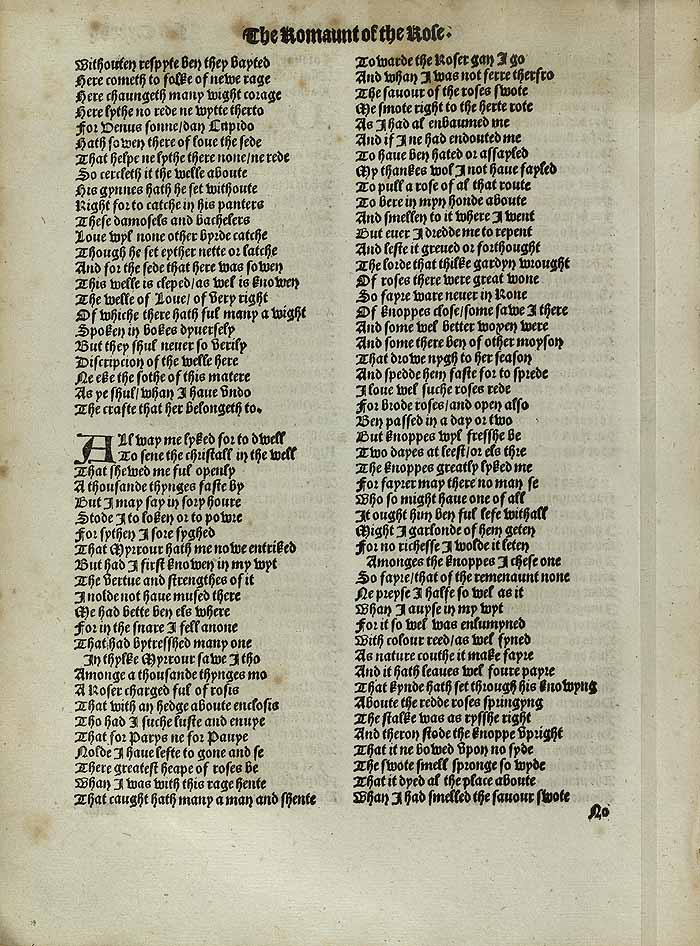 The Romaunt of the Rose.
Withouten respyte ben they bayted
Here cometh to folke of newe rage
Here chaungeth many wight corage
Here lythe no rede ne wytte therto
For Venus sonne/dan Cupido
Hath sowen there of loue the sede
That helpe ne lythe there none/ne rede
So cercleth it the welle aboute
His gynnes hath he set withoute
Right for to catche in his panters
These damosels and bachelers
Loue wyl none other byrde catche
Though he set eyther nette or latche
And for the sede that here was sowen
This welle is cleped/as wel is knowen
The welle of Loue/of very right
Of whiche there hath ful many a wight
Spoken in bokes dyuersely
But they shul neuer so verily
Discripcion of the welle here
Ne eke the sothe of this matere
As ye shul/whan I haue vndo
The crafte that her belongeth to.
ALl way me lyked for to dwell
To sene the christall in the well
That shewed me ful openly
A thousande thynges faste by
But I may say in sory houre
Stode I to loken or to powre
For sythen I sore syghed
That Myrrour hath me nowe entriked
But had I first knowen in my wyt
The vertue and strengthes of it
I nolde not haue mused there
Me had bette ben els where
For in the snare I fell anone
That had bytresshed many one
In thylke Myrrour sawe I tho
Amonge a thousande thynges mo
A Roser charged ful of rosis
That with an hedge aboute enclosis
Tho had I suche luste and enuye
That for Parys ne for Pauye
Nolde I haue lefte to gone and se
There greatest heape of roses be
Whan I was with this rage hente
That caught hath many a man and shente
Towarde the Roser gan I go
And whan I was not ferre therfro
The sauour of the roses swote
Me smote right to the herte rote
As I had al enbaumed me
And if I ne had endouted me
To haue ben hated or assayled
My thankes wol I not haue fayled
To pull a rose of al that route
To bere in myn honde aboute
And smellen to it where I went
But euer I dredde me to repent
And leste it greued or forthought
The lorde that thilke gardyn wrought
Of roses there were great wone
So fayre ware neuer in Rone
Of knoppes close/some sawe I there
And some wel better woxen were
And some there ben of other moyson
That drowe nygh to her season
And spedde hem faste for to sprede
I loue wel suche roses rede
For brode roses/and open also
Ben passed in a day or two
But knoppes wyl fresshe be
Two dayes at leest/or els thre
The knoppes greatly lyked me
For fayrer may there no man se
Who so might haue one of all
It ought him ben ful lefe withall
Might I garlonde of hem geten
For no richesse I wolde it leten
Amonges the knoppes I chese one
So fayre/that of the remenaunt none
Ne preyse I halfe so wel as it
Whan I auyse in my wyt
For it so wel was enlumyned
With colour reed/as wel fyned
As nature couthe it make fayre
And it hath leaues wel foure payre
That kynde hath set through his knowyng
Aboute the redde roses springyng
The stalke was as rysshe right
And theron stode the knoppe vpright
That it ne bowed vpon no syde
The swote smell spronge so wyde
That it dyed al the place aboute
Whan I had smelled the sauour swote
No